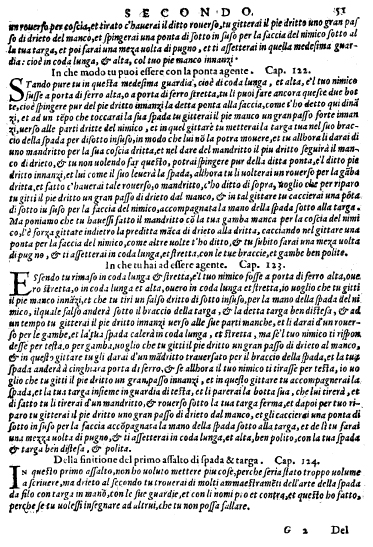 SECONDO. 51
un rouerso per coscia, et tirato c'hauerai il ditto rouerso, tu gitterai il pie dritto uno gran pas/
so di drieto del manco, et spingerai una ponta di sotto in suso per la faccia del nimico sotto al
la tua targa, et poi farai una meza uolta di pugno, et ti assetterai in quella medesima guar/
dia: cioè in coda lunga, & alta, col tuo pie manco innanzi.
In che modo tu puoi essere con la ponta agente. Cap. 122.
STando pure tu in questa medesima guardia, cioè di coda lunga, et alta, e'l tuo nimico
fusse a porta di ferro alta, o a porta di ferro stretta, tu li puoi fare ancora queste due bot
te, cioè spingere pur del pie dritto innanzi la detta ponta alla faccia, come t'ho detto qui dinā
zi, et ad un tēpo che toccarai la sua targa tu gitterai il pie manco un gran passo forte innan
zi, uerso alle parti dritte del manco, et in quel gittare tu metterai la targa tua nel suo brac/
cio della spada per disotto in suso, in modo che lui nō la potra mouere, et tu allhora li darai di
uno mandritto per la sua coscia dritta, et nel dare del mandritto il pie dritto seguirà il man/
co di drieto, & tu non uolendo far questo, potrai spingere pur della ditta ponta, e'l pie dritto
pie dritto innanzi, et lui come il suo leuerà la spada, allhora tu li uolterai un rouerso per la gāba
dritta, et fatto c'hauerai tale rouerso, o mandritto, c'ho ditto di sopra, uoglio che per riparo
tu gitti il pie dritto un gran passo di drieto dal manco, & in tal gittare tu cacciarai una pōta
di sotto in suso per la faccia del nimico, accompagnata la mano della spada sotto alla targa.
Ma poniamo che tu hauessi fatto il mandritto cō la tua gamba manca per la coscia del nimi
co, l'è forza gittare indietro la preditta māca di drieto alla dritta, cacciando nel gittare una
ponta per la faccia del nimico, come altre uolte t'ho ditto, & tu subito farai una meza uolta
di pugno, & ti assetterai in coda lunga, et stretta, con le tue braccie, et gambe ben polito.
In che tu hai ad essere agente. Cap. 123.
ESsendo tu rimaso in coda lunga, & stretta, e'l tuo nimico fosse a porta di ferro alta, oue,
ro stretta, o in coda lunga et alta, ouero in coda lunga, et stretta, io uoglio che tu gitti
il pie manco innāzi, et che tu tiri un falso dritto di sotto in suso, per la mano della spada del ni
mico, il quale falso anderà sotto il braccio della targa, & la tua spada se distenderà, & ad
un tempo tu gitterai il pie dritto innanzi uerso alle sue parti manche, et li darai d'un rouer/
so per le gambe, et la sua spada calerà in coda lunga, et stretta, ma se'l tuo nimico ti rispon/
desse per testa, o per gamba, uoglio che tu gitti il pie dritto un gran passo di drieto al manco,
& in questo gittare tu gli darai d'un mādritto trauersato per il braccio della spada, et la tua
spada anderà à cinghiara porta di ferro, & se allhora il tuo nimico ti tirasse per testa, io uo
glio che tu gitti il pie dritto un gran passo innanzi, et in questo gittare tu accompagnerai la
spada, et la tua targa insieme in guardia di testa, et li parerai la botta sua, che lui tirerà, et
di fatto tu li tirerai d'un mandritto, & rouerso sotto la sua targa ferma, et dapoi per tuo ri/
paro tu gitterai il pie dritto uno gran passo di drieto dal manco, et gli cacciarai una ponta di
sotto in suso per la faccia accōpagnata la mano della spada sotto alla targa, et de li tu farai
una mezza uolta di pugno, & ti assetterai in coda lunga, et alta, ben polito, con la tua spada
& targa ben distesa, & polita.
Della finitione del primo assalto di spada & targa. Cap. 124.
IN questo primo assalto, non ho uoluto mettere piu cose, perche seria stato troppo uolume
a scriuere, ma drieto al secondo tu trouerai di molti ammaestramēti dell'arte della spada
da filo con targa in mano, con le sue guardie, et con li nomi pro et contra, et questo ho fatto,
perche se tu uolessi insegnare ad altrui, che tu non possa fallare.
G 2 Del